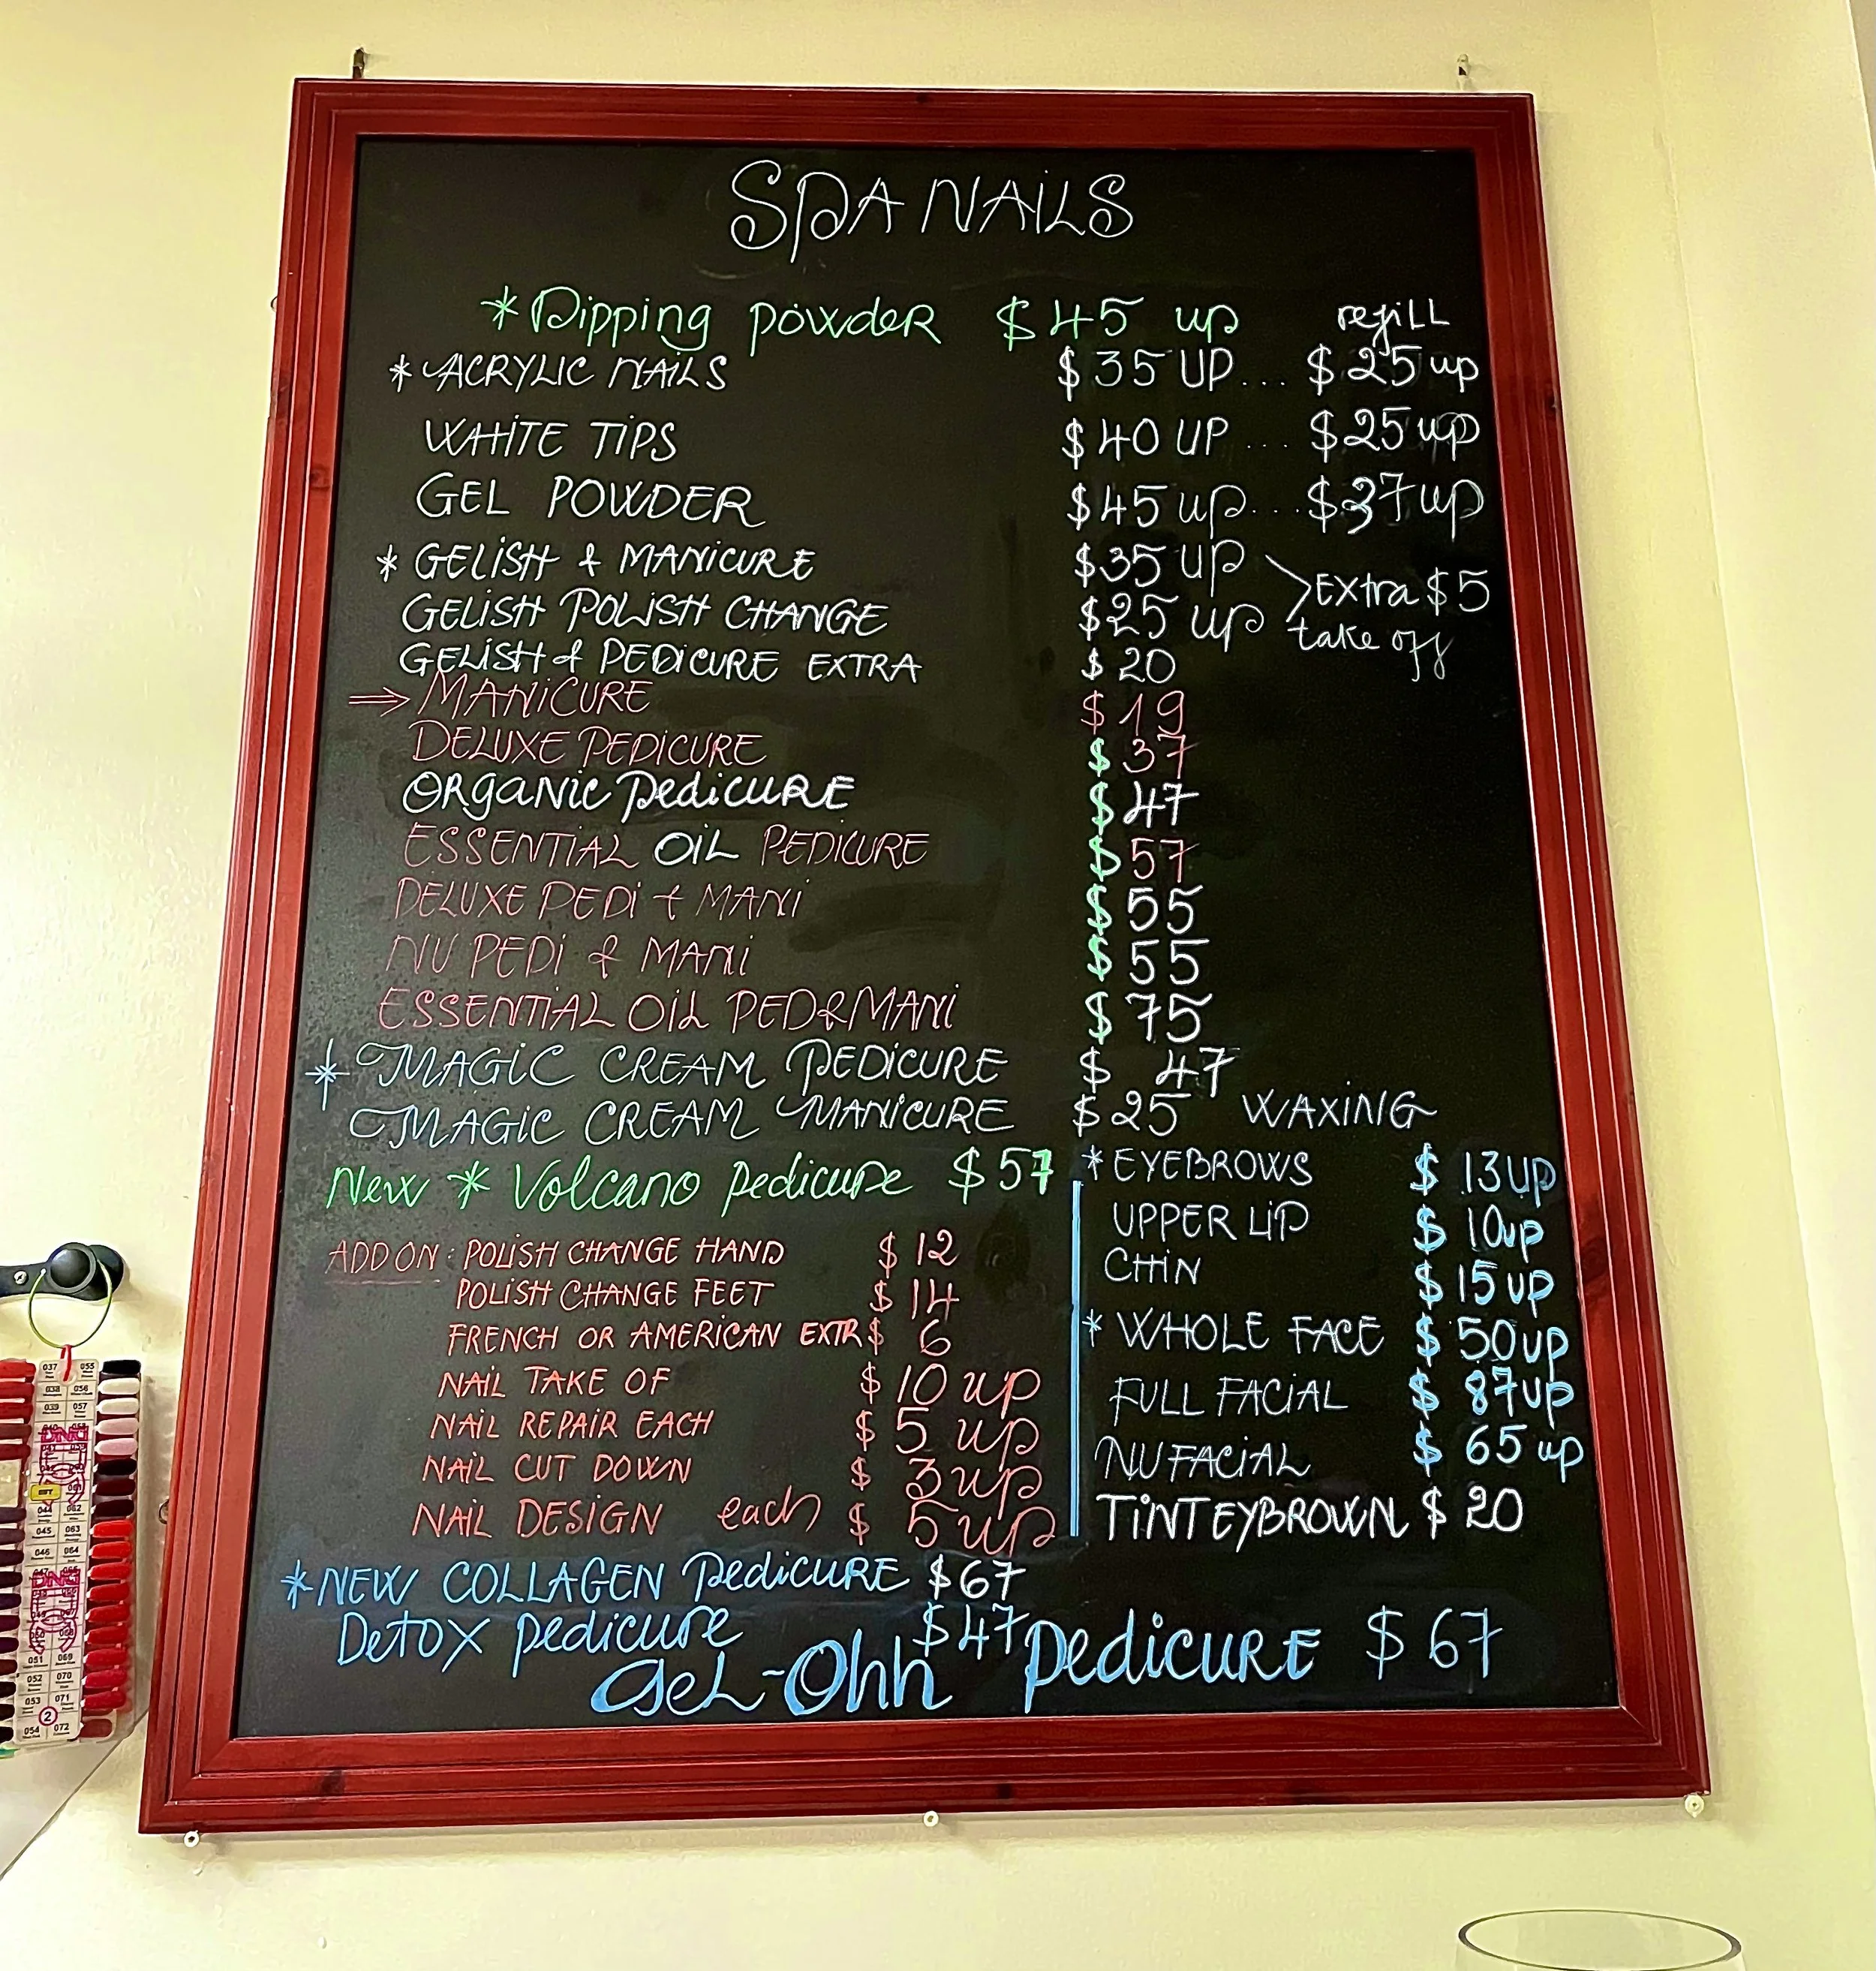 SPA NAILS
* Dipping powder $45 up refill
* ACRYLIC NAILS $35 UP... $25 up
WHITE TIPS $40 UP ... $25 up
GEL POWDER $45 up... $37 up
* GELISH & MANICURE $35 up
Extra $5
GELISH POLISH CHANGE $25 up
take off
GELISH & PEDICURE EXTRA $20
⇒ MANICURE $19
DELUXE PEDICURE $37
ORGANIC PEDICURE $47
ESSENTIAL OIL PEDICURE $57
DELUXE PEDI & MANI $55
NU PEDI & MANI $55
ESSENTIAL OIL PED&MANI $75
* MAGIC CREAM PEDICURE $47
MAGIC CREAM MANICURE $25
New * Volcano pedicure $57
ADD ON: POLISH CHANGE HAND $12
POLISH CHANGE FEET $14
FRENCH OR AMERICAN EXTR $6
NAIL TAKE OF $10 up
NAIL REPAIR EACH $5 up
NAIL CUT DOWN $3 up
NAIL DESIGN each $5 up
WAXING
* EYEBROWS $13 UP
UPPER LIP $10 up
CHIN $15 up
* WHOLE FACE $50 up
FULL FACIAL $87 up
NU FACIAL $65 up
TINT EYBROWN $20
* NEW COLLAGEN PEDICURE $67
Detox pedicure $47
GEL-Ohh PEDICURE $67
037 055
038 056
039 057
DND
045 063
046 064
DND
051 069
052 070
053 071
2
054 072